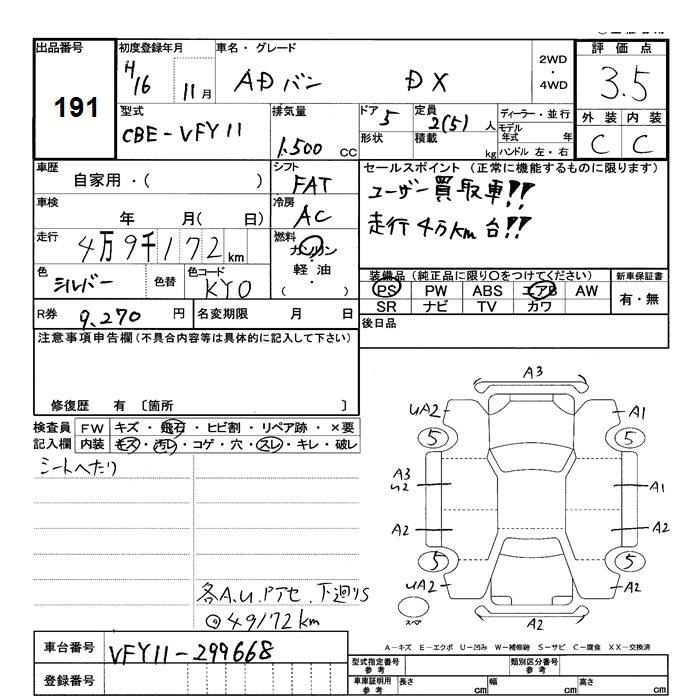 出品番号 初度登録年月 車名・グレード 2WD・4WD 評価点
191 H16 11月 ADバン DX 3.5
型式 排気量 ドア 定員 ディーラー・並行 外装 内装
CBE-VFY11 1.500 CC 5 2(5)人 モデル年式 年 C C
形状 積載 kg ハンドル 左・右
車歴 シフト セールスポイント (正常に機能するものに限ります)
自家用・( ) FAT ユーザー買取車!!
車検 冷房 走行4万km台!!
年 月( 日) AC
走行 燃料
4万9千172km ガソリン
軽油
・
( )
色 色替 色コード
シルバー KYO
装備品 (純正品に限り○をつけてください) 新車保証書
PS PW ABS エアB AW 有・無
SR ナビ TV カワ
R券 9,270 円 名変期限 月 日
後日品
注意事項申告欄(不具合内容等は具体的に記入して下さい)
修復歴 有 〔箇所 〕
検査員 FW キズ・飛石・ヒビ割・リペア跡・×要
記入欄 内装 キズ・汚レ・コゲ・穴・スレ・キレ・破レ
シートへたり
A3
UA2 A1
5 5
A3
U2 A1
A2 A2
5 5
UA2 A2
スペア A2
各A.U.PTセ、下廻りS
◎49172km
A-キズ E-エクボ U-凹み W-補修跡 S-サビ C-腐食 XX-交換済
車台番号 VFY11-299668
登録番号
型式指定番号 参考 類別区分番号 参考
車庫証明用 参考 長さ cm 幅 cm 高さ cm